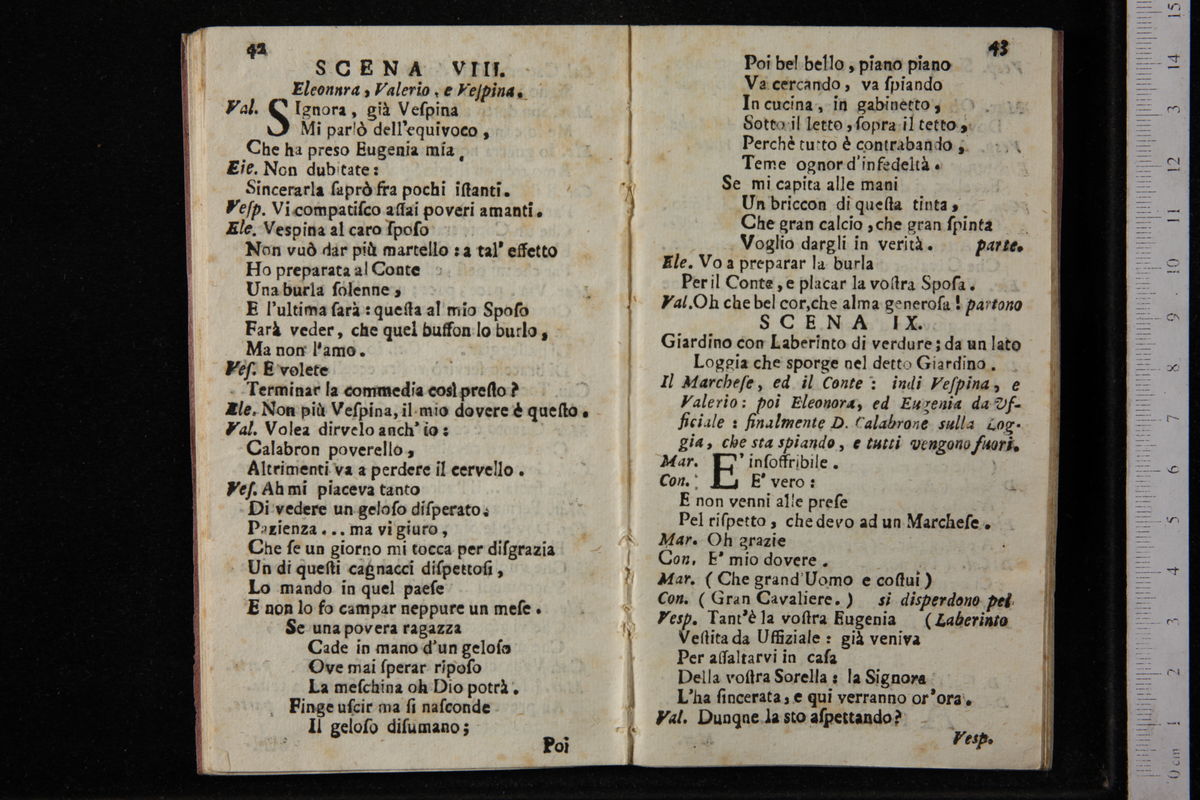 42
SCENA VIII.
Eleonnra, Valerio, e Veſpina.
Val. SIgnora, già Veſpina
Mi parlò dell'equivoco,
Che ha preso Eugenia mia,
Eie. Non dubitate:
Sincerarla ſaprò fra pochi iſtanti.
Veſp. Vi compatiſco aſſai poveri amanti.
Ele. Vespina al caro ſpoſo
Non vuò dar più martello: a tal' effetto
Ho preparata al Conte
Una burla ſolenne,
E l'ultima ſarà: queſta al mio Spoſo
Farà veder, che quel buffon lo burlo,
Ma non l'amo.
Veſ. E volete
Terminar la commedia così preſto?
Ele. Non più Veſpina, il mio dovere è queſto.
Val. Volea dirvelo anch' io:
Calabron poverello,
Altrimenti va a perdere il cervello.
Veſ. Ah mi piaceva tanto
Di vedere un geloſo diſperato.
Pazienza... ma vi giuro,
Che ſe un giorno mi tocca per diſgrazia
Un di queſti cagnacci diſpettoſi,
Lo mando in quel paeſe
E non lo fo campar neppure un meſe.
Se una povera ragazza
Cade in mano d'un geloſo
Ove mai ſperar ripoſo
La meſchina oh Dio potrà.
Finge uſcir ma ſi naſconde
Il geloſo diſumano;
Poi
43
Poi bel bello, piano piano
Va cercando, va ſpiando
In cucina, in gabinetto,
Sotto il letto, ſopra il tetto,
Perchè tutto è contrabando,
Teme ognor d'infedeltà.
Se mi capita alle mani
Un briccon di queſta tinta,
Che gran calcio, che gran ſpinta
Voglio dargli in verità. parte.
Ele. Vo a preparar la burla
Per il Conte, e placar la voſtra Spoſa.
Val. Oh che bel cor, che alma generoſa! partono
SCENA IX.
Giardino con Laberinto di verdure; da un lato
Loggia che sporge nel detto Giardino.
Il Marcheſe, ed il Conte: indi Veſpina, e
Valerio: poi Eleonora, ed Eugenia da Uf-
ficiale: finalmente D. Calabrone sulla Log-
gia, che sta spiando, e tutti vengono fuori.
Mar. E' inſoffribile.
Con. E' vero:
E non venni alle preſe
Pel riſpetto, che devo ad un Marcheſe.
Mar. Oh grazie
Con. E' mio dovere.
Mar. (Che grand'Uomo e coſtui)
Con. (Gran Cavaliere.) si disperdono pel
Vesp. Tant'è la voſtra Eugenia (Laberinto
Veſtita da Uffiziale: già veniva
Per aſſaltarvi in caſa
Della voſtra Sorella: la Signora
L'ha ſincerata, e qui verranno or'ora.
Val. Dunqne la sto aſpettando?
Vesp.